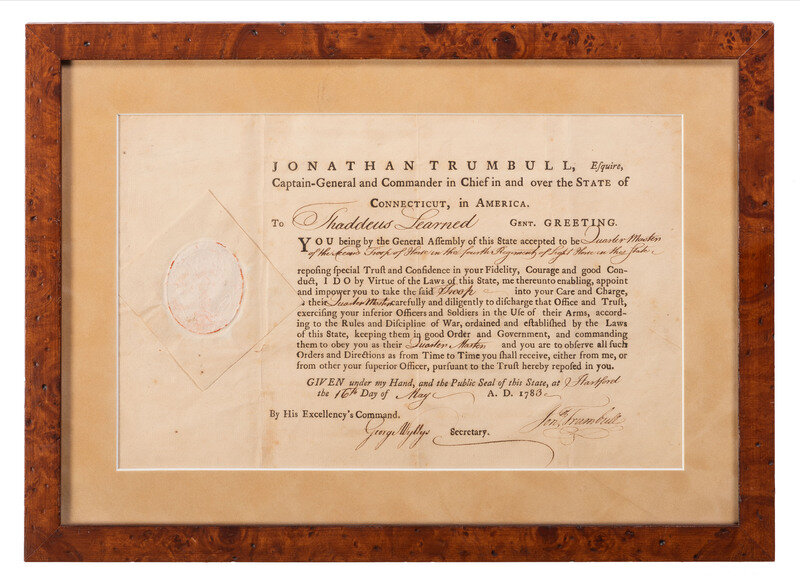 JONATHAN TRUMBULL, Eſquire,
Captain-General and Commander in Chief in and over the STATE of
CONNECTICUT, in AMERICA.
To Thaddeus Learned GENT. GREETING.
YOU being by the General Aſſembly of this State accepted to be Quarter Master
of the Troop of Horse in the fourth Regiment of Light Horse in this State
repoſing ſpecial Truſt and Confidence in your Fidelity, Courage and good Con-
duct, I DO by Virtue of the Laws of this State, me thereunto enabling, appoint
and impower you to take the ſaid Troop into your Care and Charge,
as their Quarter Master carefully and diligently to diſcharge that Office and Truſt,
exerciſing your inferior Officers and Soldiers in the Uſe of their Arms, accord-
ing to the Rules and Diſcipline of War, ordained and eſtabliſhed by the Laws
of this State, keeping them in good Order and Government, and commanding
them to obey you as their Quarter Master and you are to obſerve all ſuch
Orders and Directions as from Time to Time you ſhall receive, either from me, or
from other your ſuperior Officer, purſuant to the Truſt hereby repoſed in you.
GIVEN under my Hand, and the Public Seal of this State, at Hartford
the 16th Day of May A. D. 1783
By His Excellency's Command.
George Wyllys Secretary.
Jonth Trumbull